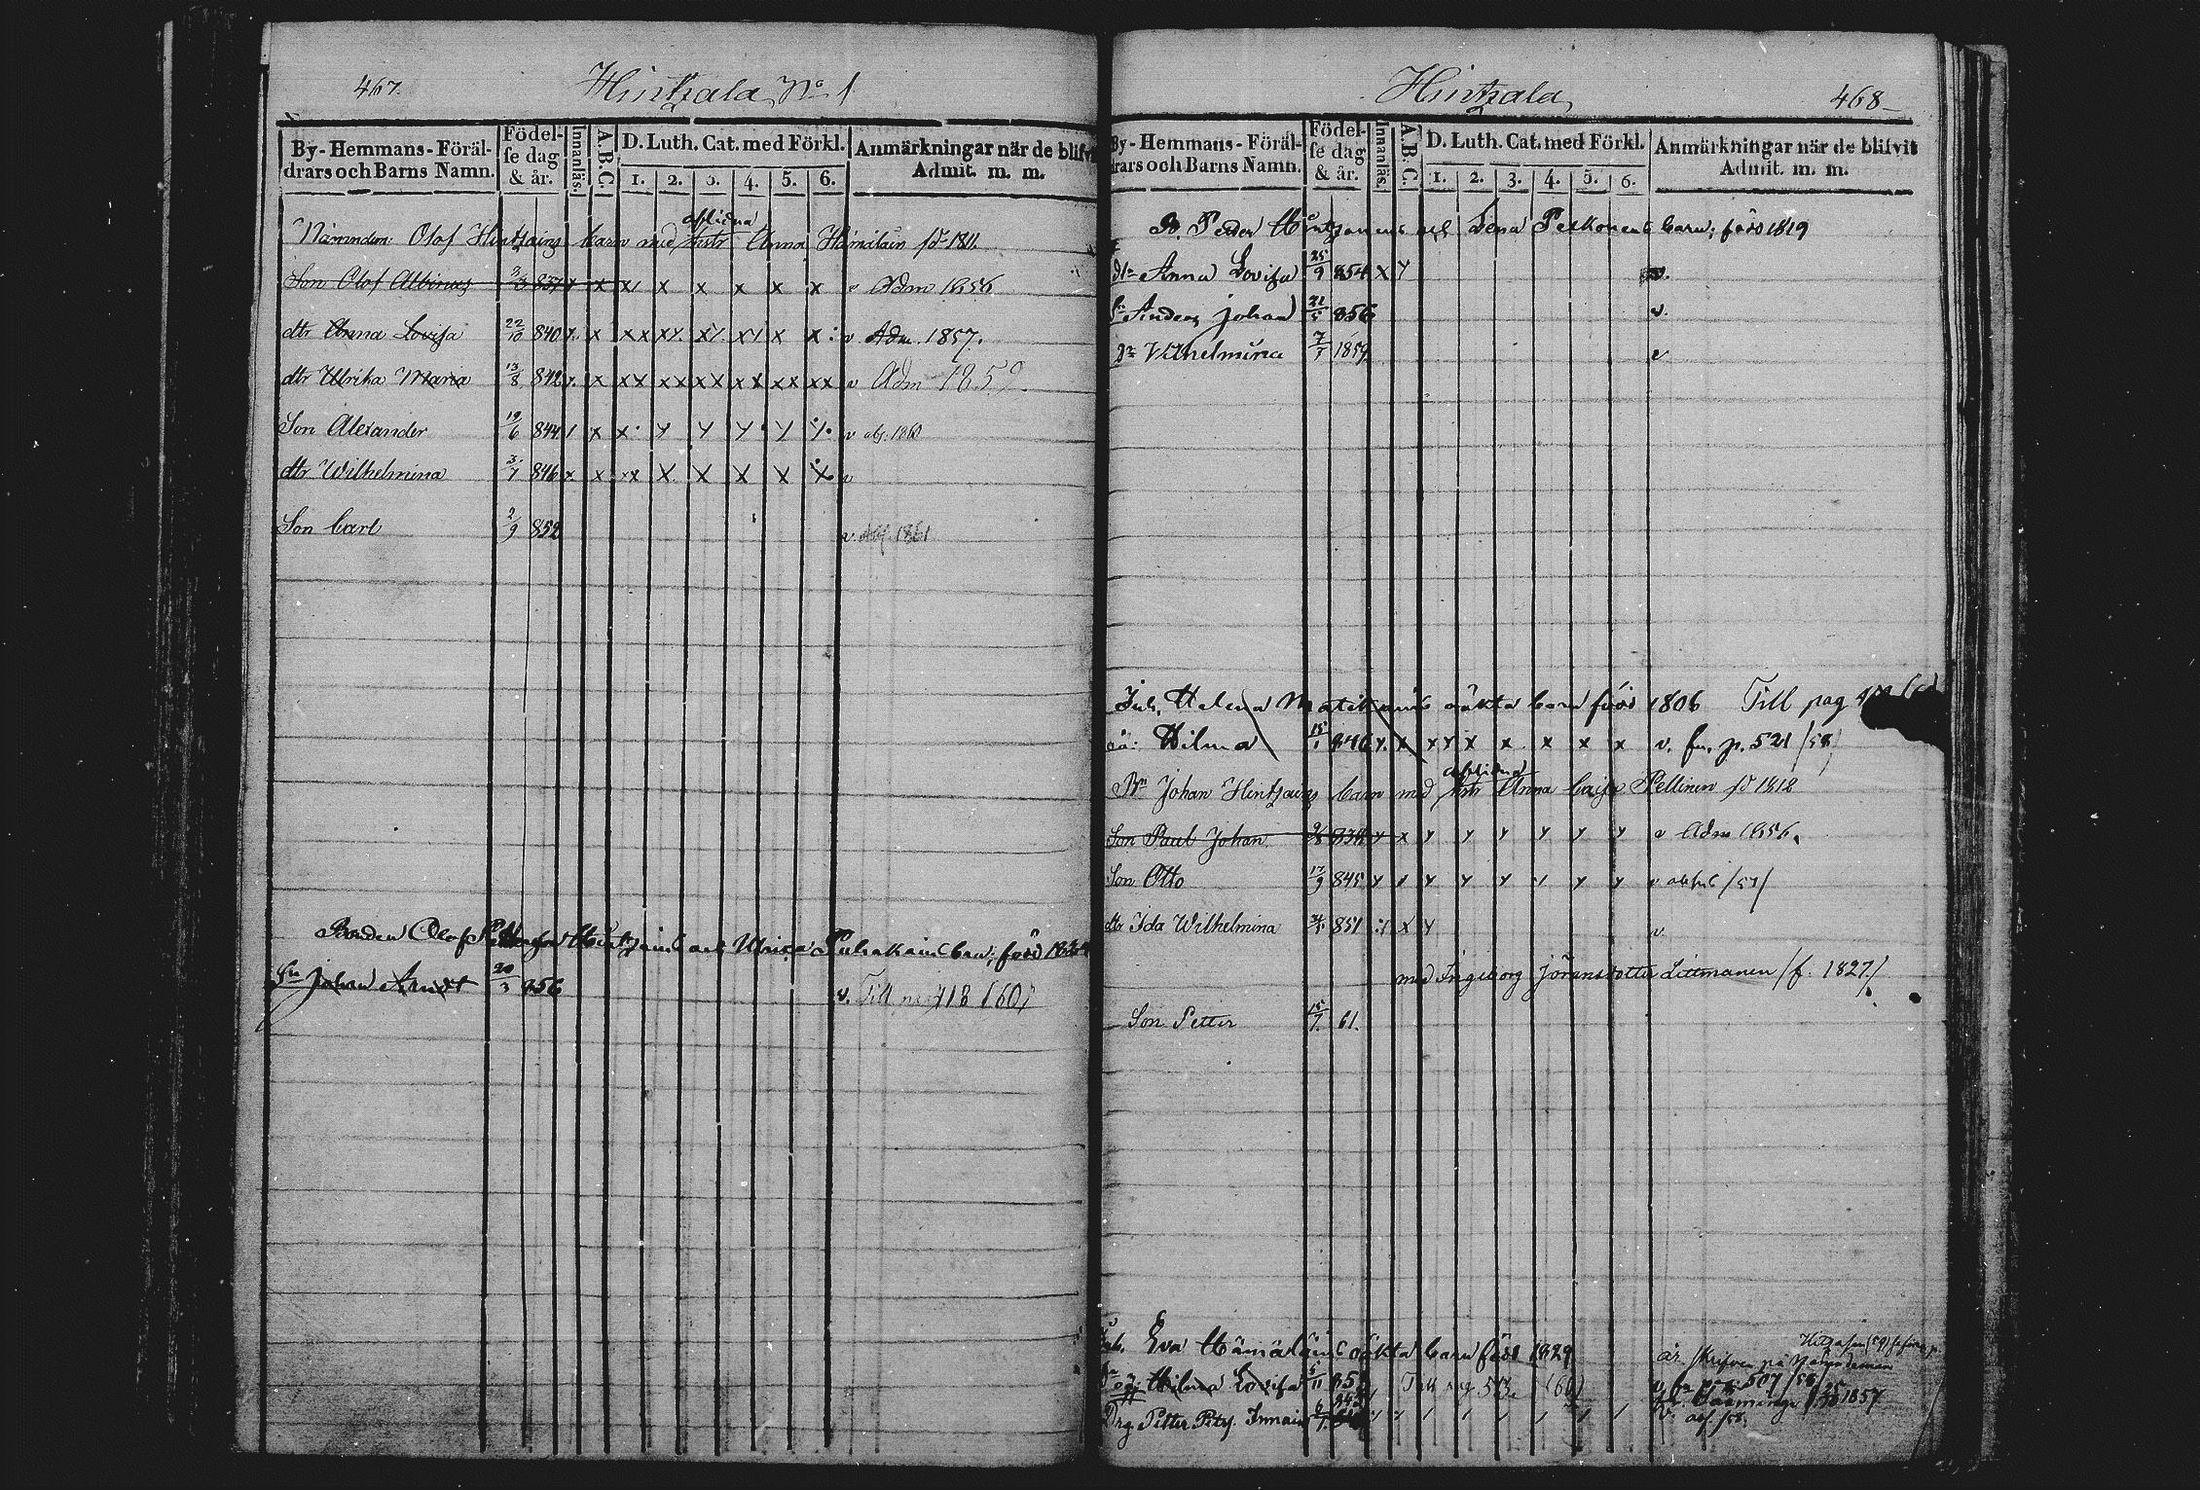 467.
Hintzala, No 1
By- Hemmans- Föräl-
drars och Barns Namn.
Födel-
se dag
& år.
Innanläs.
A.B.C.
D. Luth. Cat. med Förkl.
1. 2. 3. 4. 5. 6.
Anmärkningar när de blifvit
Admit. m. m.
aflidna
Nämndem: Olof Hintzains barn med hustr Anna Hämiläin fd 1811
Son Olof Albinus 837 x x x x x x x x v Adm 1856
dtr Anna Lovisa 22/10 840 x. x xx xx. xx. xx x x : v Adm. 1857.
dtr Ulrika Maria 13/8 842 x. x xx xx xx xx xx xx v Adm 1859
Son Alexander 19/6 844 / x x. y y y. y y. v abs: 1860
dtr Wilhelmina 3/7 846 x. x xx x x x x x. v
Son Carl 2/9 852 v. Abs. 1861
Bonden Olof Hintzains och Ulrica barn, född
Sn Johan Arndt 20/3 856 v. Till 418 /60/
Hintzala, 468
By- Hemmans- Föräl-
drars och Barns Namn.
Födel-
se dag
& år.
Innanläs.
A.B.C.
D. Luth. Cat. med Förkl.
1. 2. 3. 4. 5. 6.
Anmärkningar när de blifvit
Admit. m. m.
B. Peder Hintzonens och Lena Peskonens barn; född 1819
dr Anna Lovisa 25/9 854 x y v.
Sn Anders Johan 21/5 856 v.
dr Vilhelmina 7/7 1859 v
Inh. Helena oäkta barn född 1806 Till pag
oä: Hilma 15/1 846 y. x xyx x x x x v. fr. p. 521 /58/
aflidna
Bn Johan Hintzains barn med hstr Anna Caisa Pellinen fd 1812
Son Paul Johan 838 y x y y y y y y v Adm 1856.
Son Otto 17/9 845 y y y y y y y y v /57/
dtr Ida Wilhelmina 851 y x y v
med Ingeborg Jöransdotter Littmanen /f. 1827/.
Son Petter 15/7. 61.
Inh. Eva Hämäläins oäkta barn född 1829
oä: Hilma Lovisa 5/11 Till pag 513. (60)
Drg Petter Petrs. Innain
är skrifven på
v. fr. pag 507 /58/
1857
v. abs /58.